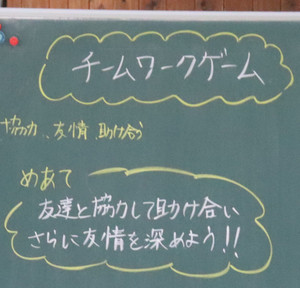 チームワークゲーム
協力、友情、助け合う
めあて
友達と協力して助け合い
さらに友情を深めよう!!